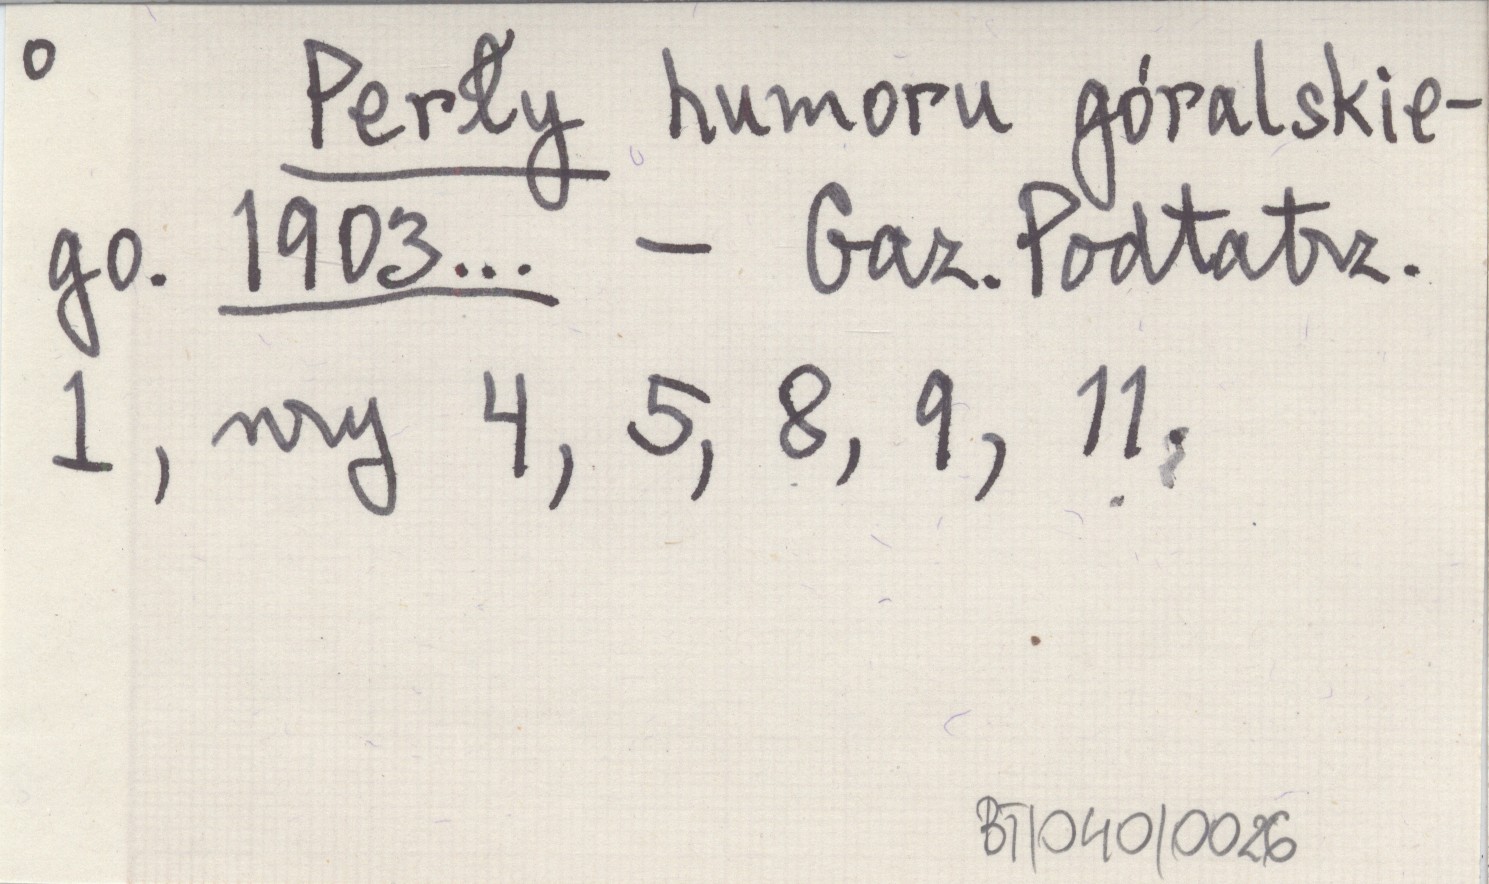 o Perły humoru góralskie-
go. 1903... – Gaz. Podtatrz.
1, nry 4, 5, 8, 9, 11.
BT/040/0026